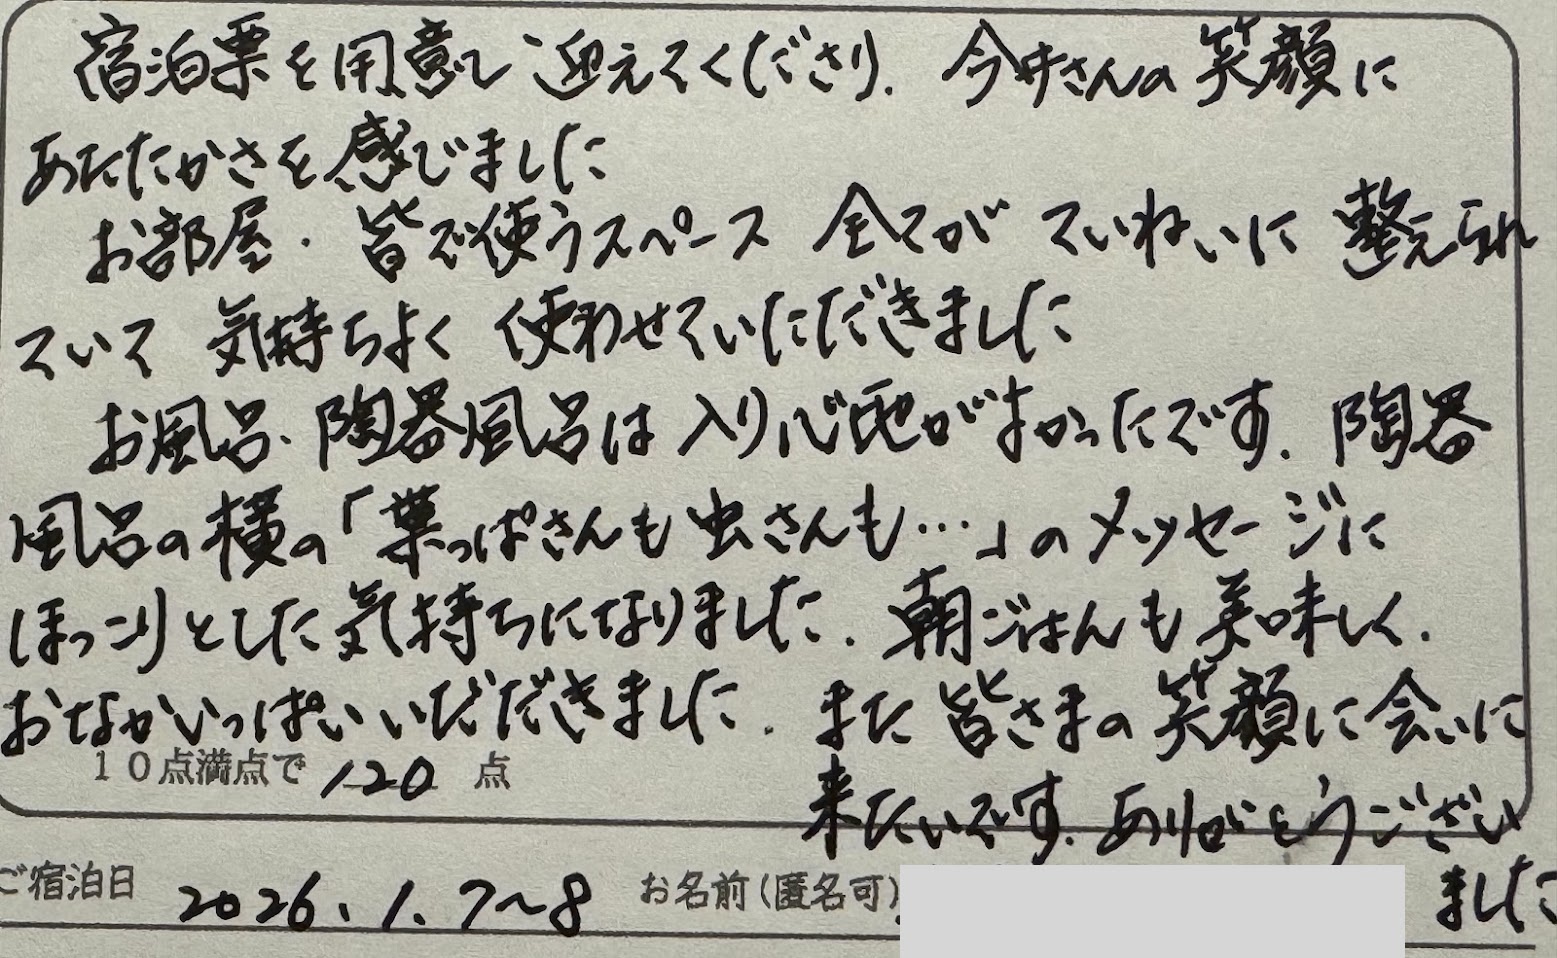 宿泊票を用意して迎えてくださり、今井さんの笑顔に
あたたかさを感じました
お部屋・皆で使うスペース 全てが ていねいに 整えられ
ていて 気持ちよく 使わせていただきました
お風呂、陶器風呂は入り心地がよかったです。陶器
風呂の横の「葉っぱさんも虫さんも…」のメッセージに
ほっこりとした気持ちになりました。朝ごはんも美味しく、
おなかいっぱいいただきました。また皆さまの笑顔に会いに
10点満点で 120 点
来たいです。ありがとうござい
ました
ご宿泊日 2026.1.7〜8 お名前(匿名可)